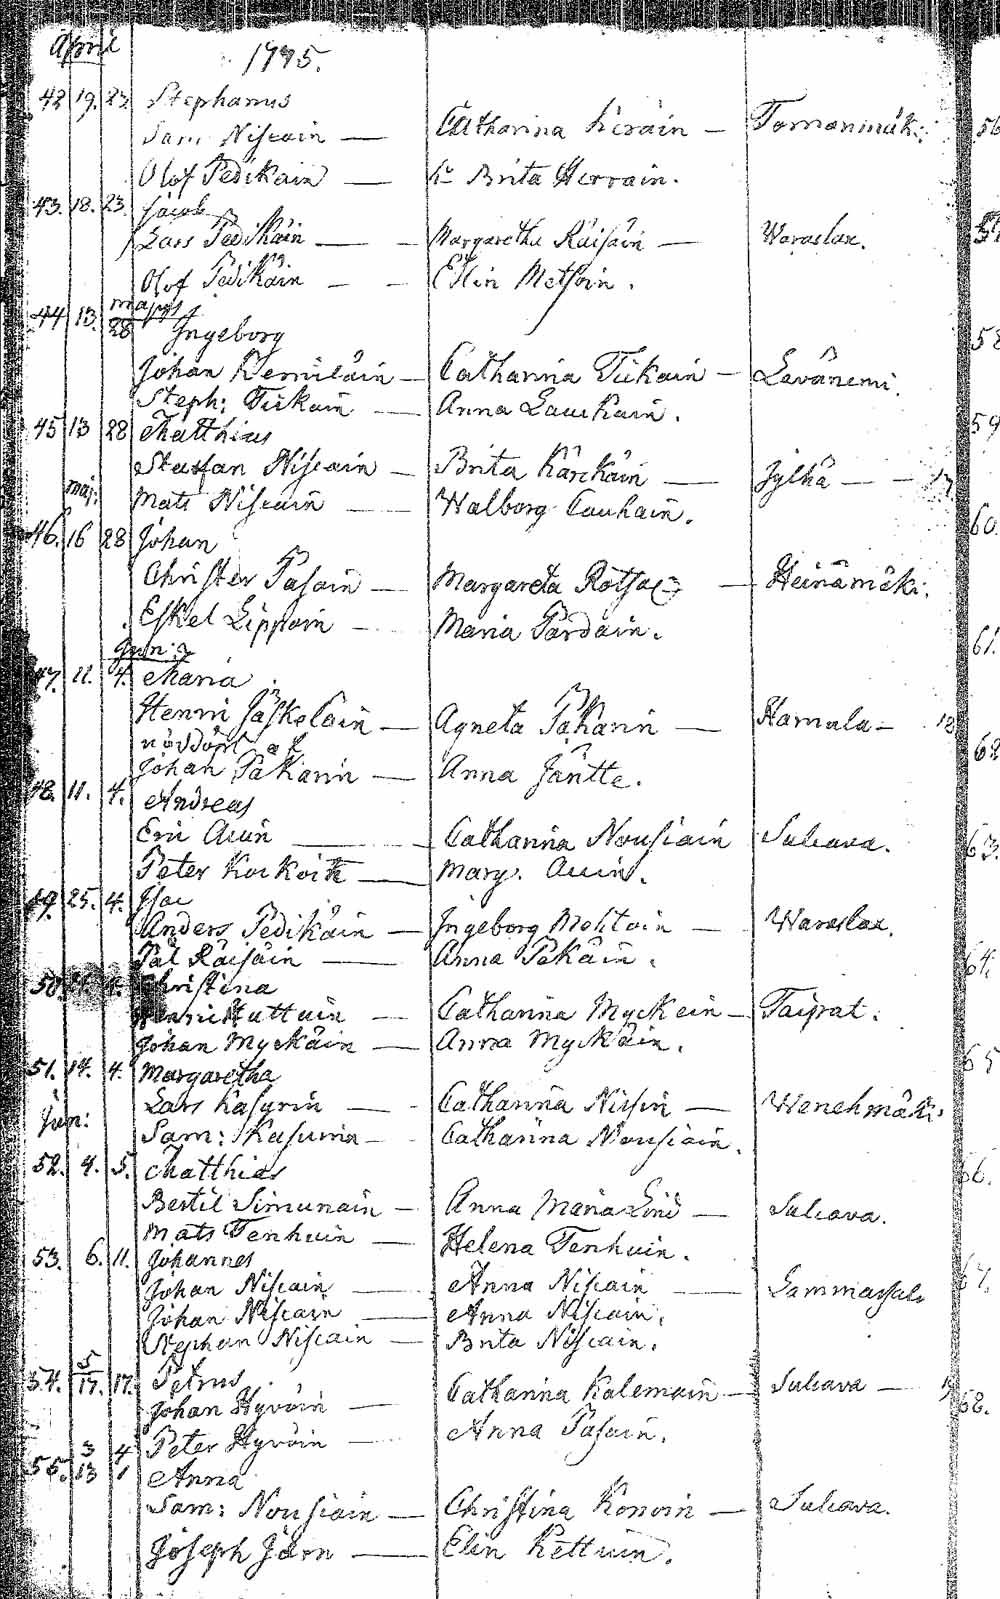 April 1775.
42 19. 23 Stephanus
Sam Niscain — Catharina Keräin — Tomanmäki:
Olof Pedikäin — hr Brita Herrain.
43. 18. 23. Jacob
Lars Pedikäin — Margaretha Räisäin — Waraslax.
Olof Pedikäin — Elin Metsoin.
majus
44 13. 28 Ingeborg
Johan Kemiläin — Catharina Tiikain — Levänemi.
Steph: Tiikain — Anna Lauikain.
45 13 28 Matthias
Staffan Niscain — Brita Kärckäin — Jylhä —
maj:
Mats Niscain — Walborg Cauhain.
46. 16 28 Johan
Christer Pasain — Margareta — Heinämäki.
Eskel Lippoin — Maria Pärdäin.
Jun:
47. 11. 4. Maria
Henric Jäskeläin — Agneta Päkarin — Hamula —
nöddöpt af
Johan Päkarin — Anna Jäntte.
48. 11. 4. Andreas
Eric Auin — Catharina Nousiain Sulcava.
Peter Korkoin — Marg. Auin.
49. 25. 4. Isac
Anders Pedikäin — Ingeborg — Waraslax.
Pål Räisäin — Anna Päkäin.
50. 4. Christina
Henric Huttuin — Catharina Myckein — Taipal.
Johan Myckäin — Anna Myckäin.
51. 14. 4. Margaretha
Jun: Lars Kasurin — Catharina Nissin — Wenehmäki.
Sam: Kasurin — Catharina Nousiain.
52. 4. 5. Matthias
Bertil Simunain — Anna Maria — Sulcava.
Mats Tenhuin — Helena Tenhuin.
53. 6. 11. Johannes
Johan Niscain — Anna Niscain — Lammassalo
Johan Niscain — Anna Niscain.
Stephan Niscain — Brita Niscain.
54. 5/17. 17. Petrus
Johan Hyvöin — Catharina Kalemain — Sulcava —
Peter Hyvöin — Anna Pasain.
55. 3/13 4/1 Anna
Sam: Nousiain — Christina Konoin — Sulcava.
Joseph Järn — Elin Kettuin.
56
58
59
60.
61.
62
63.
64.
65
66.
67.
68.